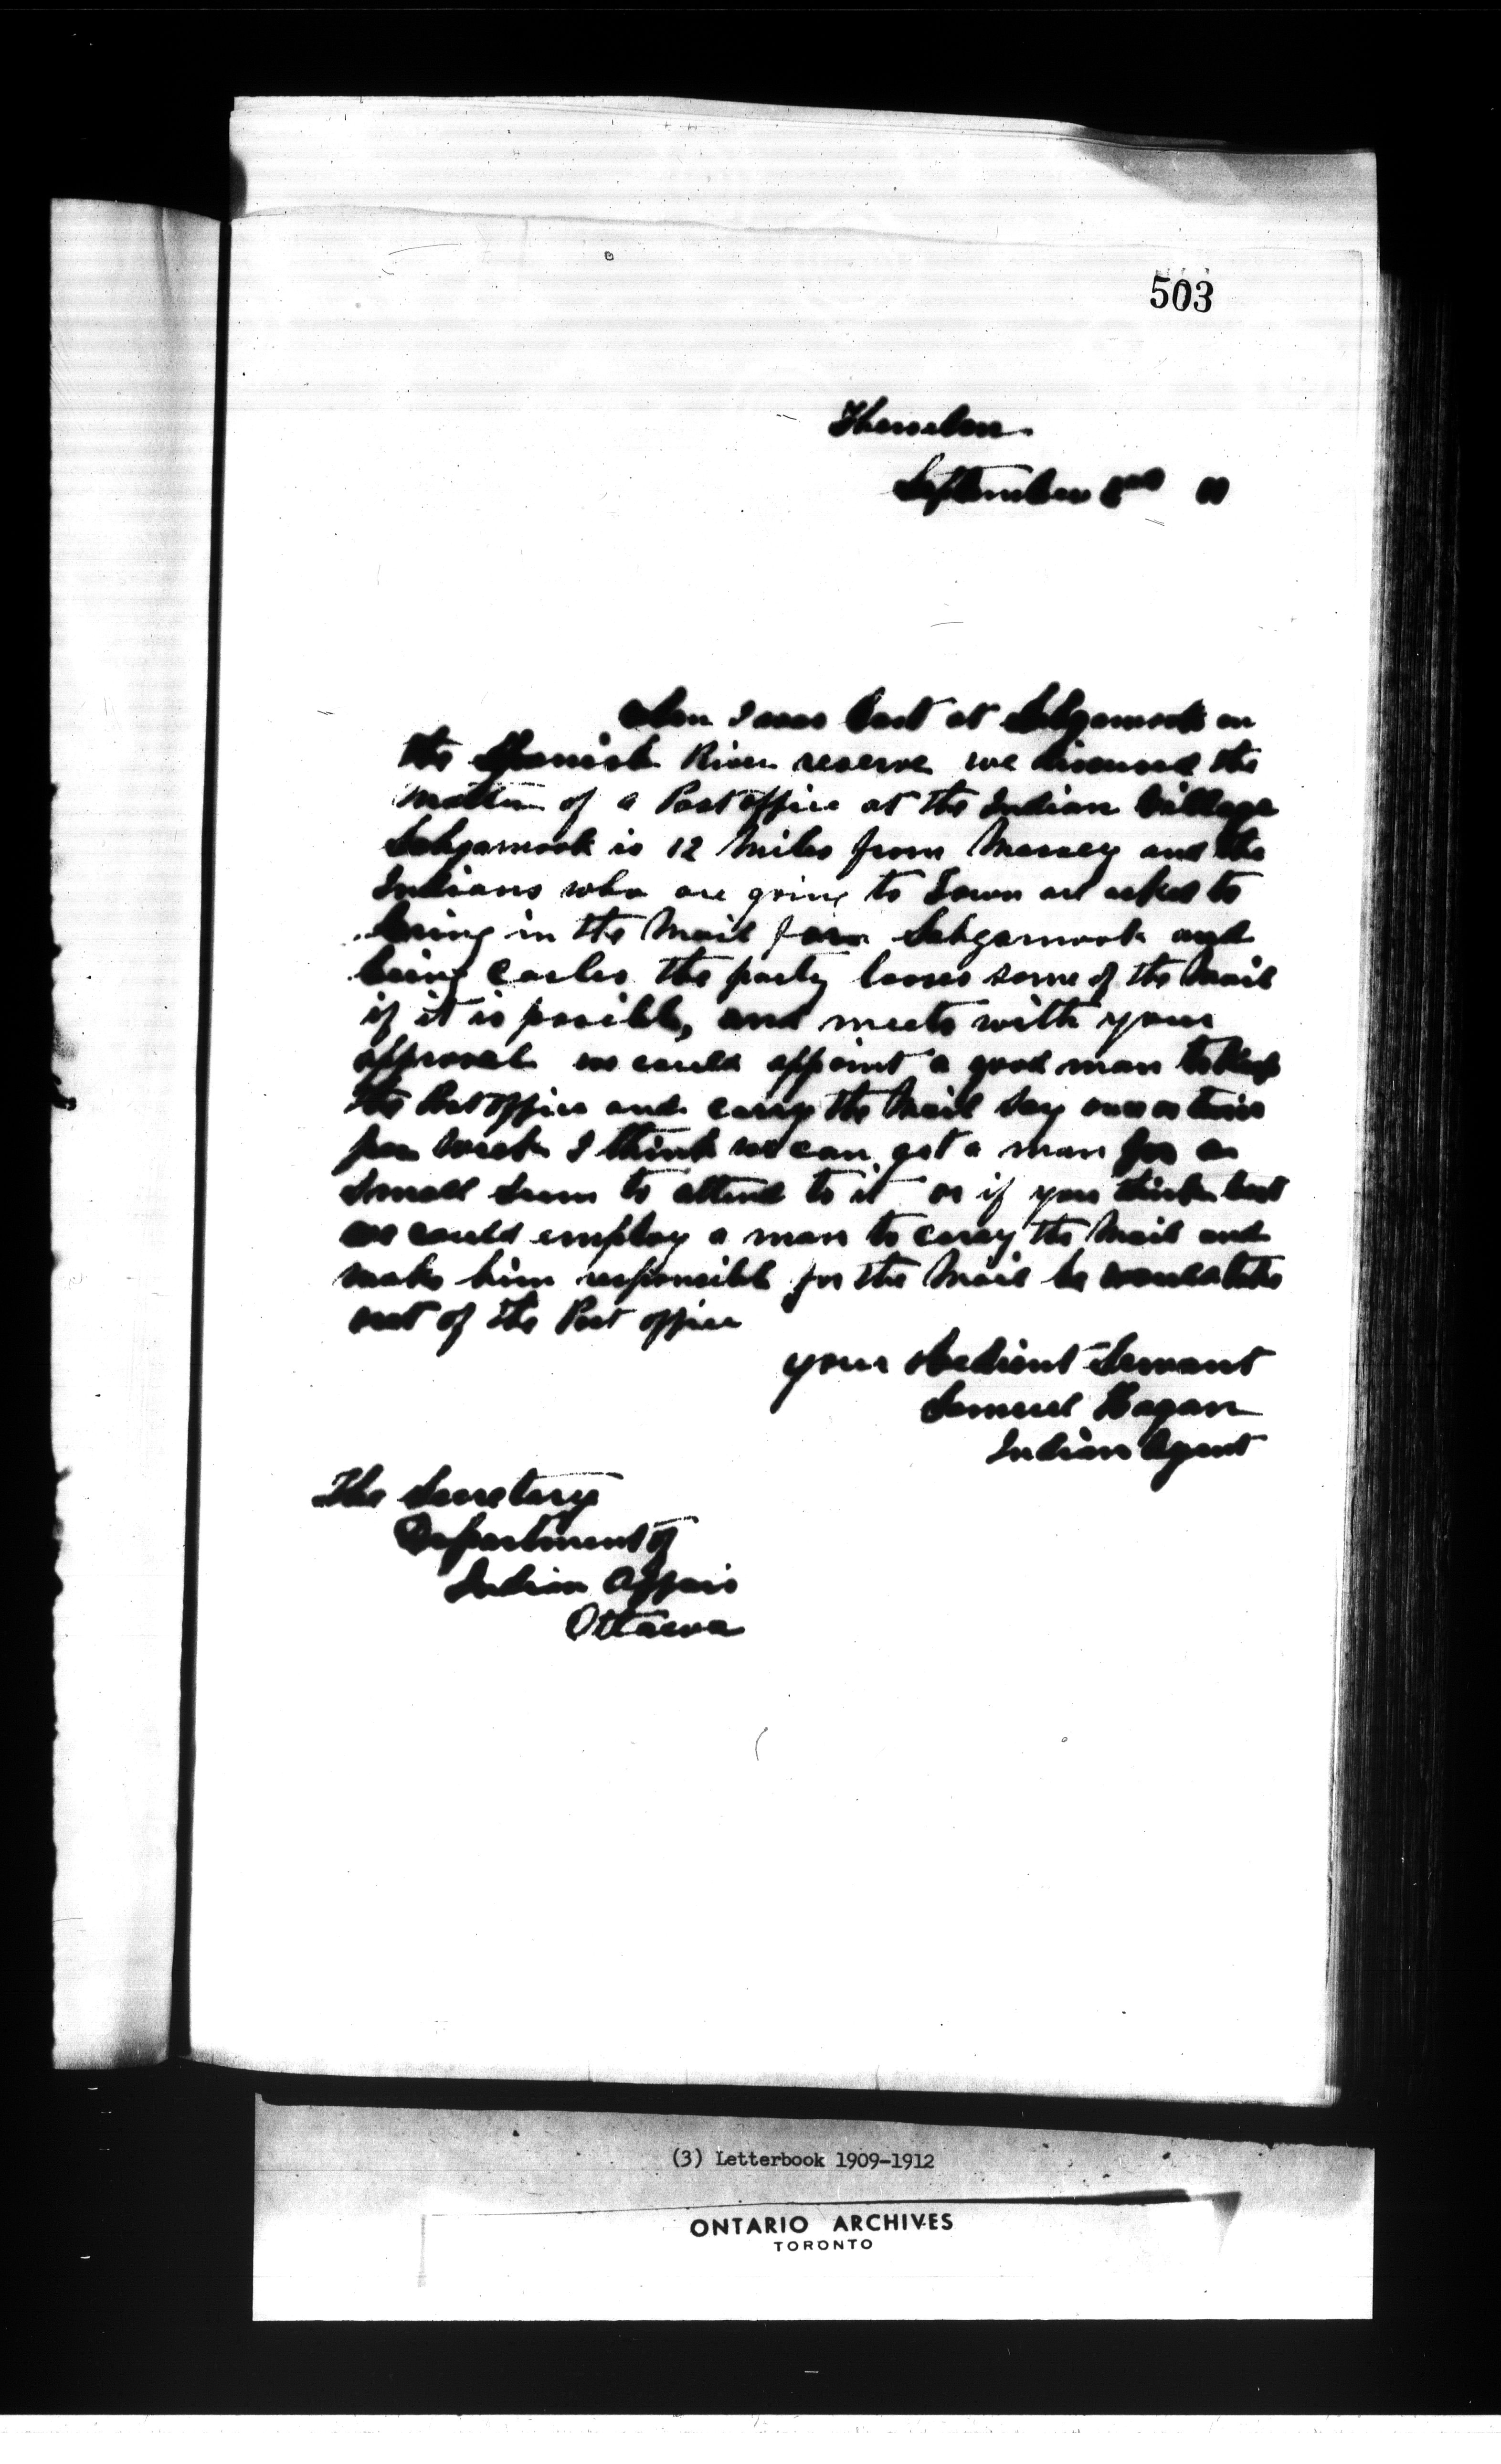 503
Thessalon
September 2nd 11
When I was last at Sahgamook on
the Spanish River reserve we discused the
matter of a Post office at the Indian Village
Sahgamook is 12 Miles from Massey and the
Indians who are going to Town are asked to
bring in the Mail for Sahgamook and
being carles the party looses some of the Mail
if it is posible, and meets with your
approval we could appoint a good man to keep
the Post office and carry the Mail Say once or twice
per week I think we can get a man for a
Small Sum to attend to it or if you think best
we could employ a man to carry the Mail and
make him responsible for the Mail he would take
out of the Post office
your obedient Servant
Samuel Hagan
Indian Agent
The Secretary
Department of
Indian Affairs
Ottawa
(3) Letterbook 1909-1912
ONTARIO ARCHIVES
TORONTO